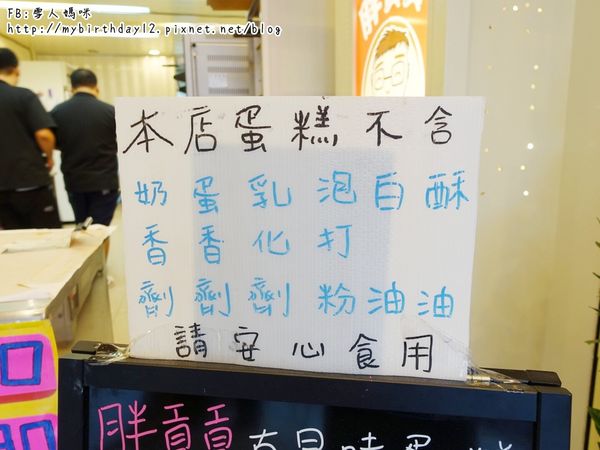 FB:雪人媽咪
http://mybirthday12.pixnet.net/blog
本店蛋糕不含
奶蛋乳泡白酥
香香化打
劑劑劑粉油油
請安心食用
胖